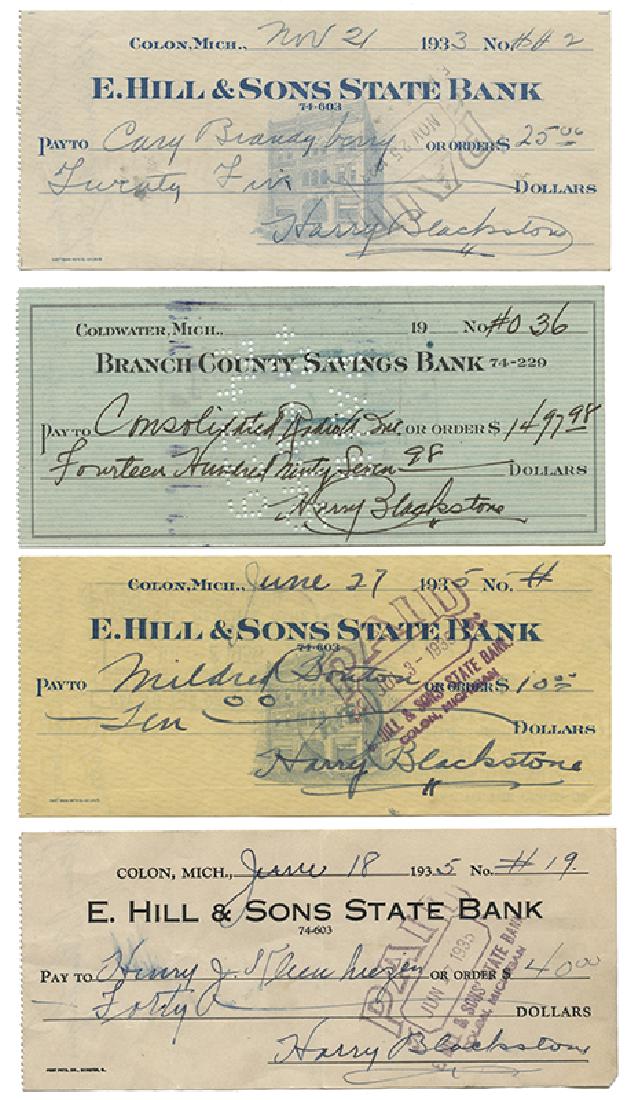 COLON, MICH., Nov 21 1933 No. ##2
E. HILL & SONS STATE BANK
74-603
PAY TO Cary Brandyberry OR ORDER $ 25.00
Twenty Five DOLLARS
Harry Blackstone
PAID
NOV 25
COLDWATER, MICH., 19 No. #036
BRANCH COUNTY SAVINGS BANK 74-229
PAY TO Consolidated Radio Inc OR ORDER $ 1497 98
Fourteen Hundred Ninty Seven 98 DOLLARS
Harry Blackstone
COLON, MICH., June 27 1935 No. #
E. HILL & SONS STATE BANK
74-603
PAY TO Mildred Bouton OR ORDER $ 10 00
Ten 00 DOLLARS
Harry Blackstone
PAID
3-1935
E. HILL & SONS STATE BANK
COLON, MICHIGAN
COLON, MICH., June 18 1935 No. #19
E. HILL & SONS STATE BANK
74-603
PAY TO Henry J. OR ORDER $ 40 00
Forty DOLLARS
Harry Blackstone
PAID
JUN 1935
E. HILL & SONS STATE BANK
COLON, MICHIGAN